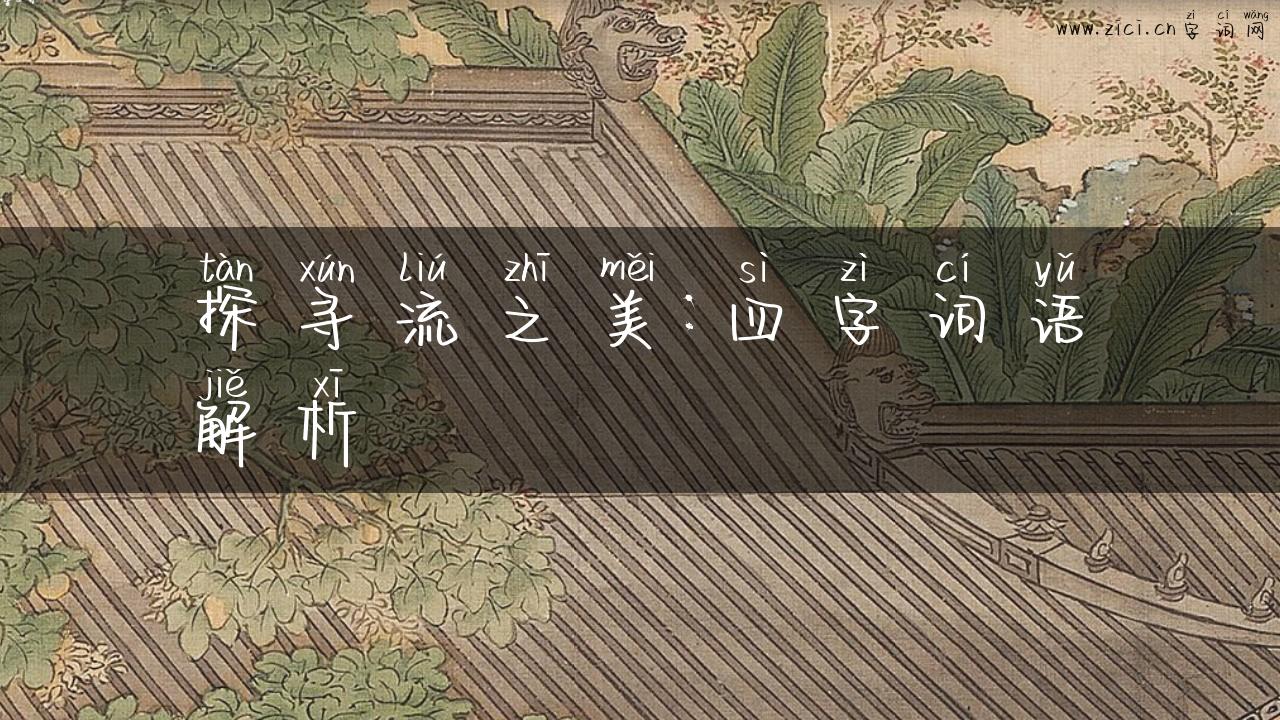 www.zici.cn 字词网
zì cí wǎng
tàn xún liú zhī měi sì zì cí yǔ
探寻流之美：四字词语
jiě xī
解析